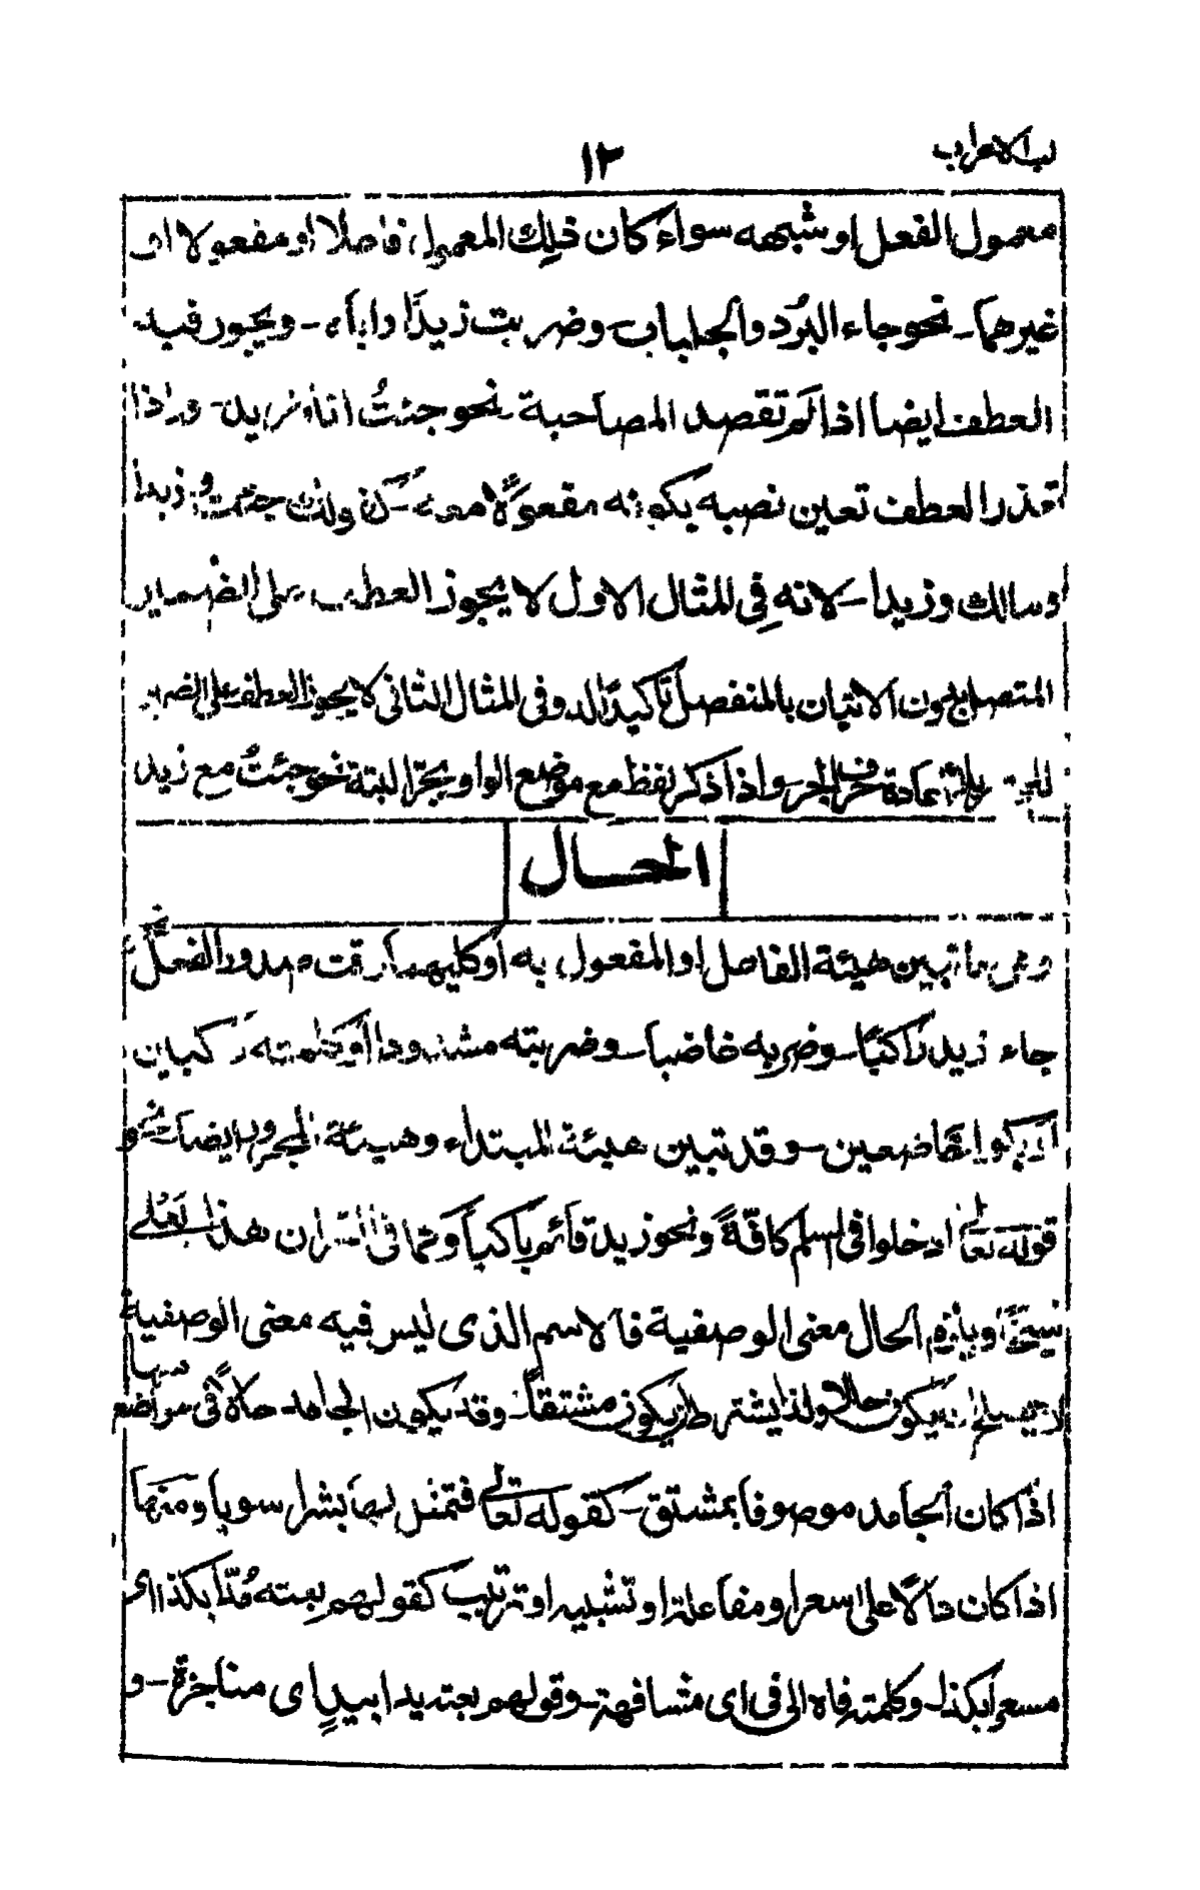 لب الاعراب
١٢
معمول الفعل او شبهه سواء كان ذلك المعمول فاعلا او مفعولا او
غيرهما - نحو جاء البرُد والجلباب وضربت زيدًا واباه - ويجوز فيه
العطف ايضا اذا لم تقصد المصاحبة - نحو جئتُ انا وزيد - واذا
تعذر العطف تعين نصبه يكونه مفعولًا معه - كقولك جئت وزيدا
ومالك وزيدا - لانه فِي المثال الاول لا يجوز العطف على الضمير
المتصل بدون الاتيان بالمنفصل تاكيدًا له وفي المثال الثاني لا يجوز العطف على الضمير
بلا اعادة حرف الجر واذا ذكر لفظ مع موضع الواو يجرّ البتة نحو جئتُ مع زيد
الحال
وهي ما تبين هيئة الفاعل او المفعول به او كليهما وقت صدور الفعل نحو
جاء زيد راكبًا - وضربه غاضبا - وضربته مشدودا او كلمته راكبين
خاضعين - وقد تبين هيئة المبتداء وهيئة المجرور ايضا نحو
قوله تعالى ادخلوا في السلم كافّةً ونحو زيد قائم باكيا وكما في القران هذا بعلي
شيخًا ويلزم الحال معنى الوصفية فالاسم الذى ليس فيه معنى الوصفية
لا يصلح ان يكون حالا ولذا يشترط ان يكون مشتقا - وقد يكون الجامد حالًا في مواضع منها
اذا كان الجامد موصوفا بمشتق - كقوله تعالى فتمثل لها بشرا سويا ومنها
اذا كان دالًا على سعر او مفاعلة او تشبيه او ترتيب كقولهم بعته مُدًّا بكذا اى
مسعرا بكذا - وكلمته فاه الى في اى مشافهة - وقولهم بعته يدا بيدٍ اى مناجزة - و